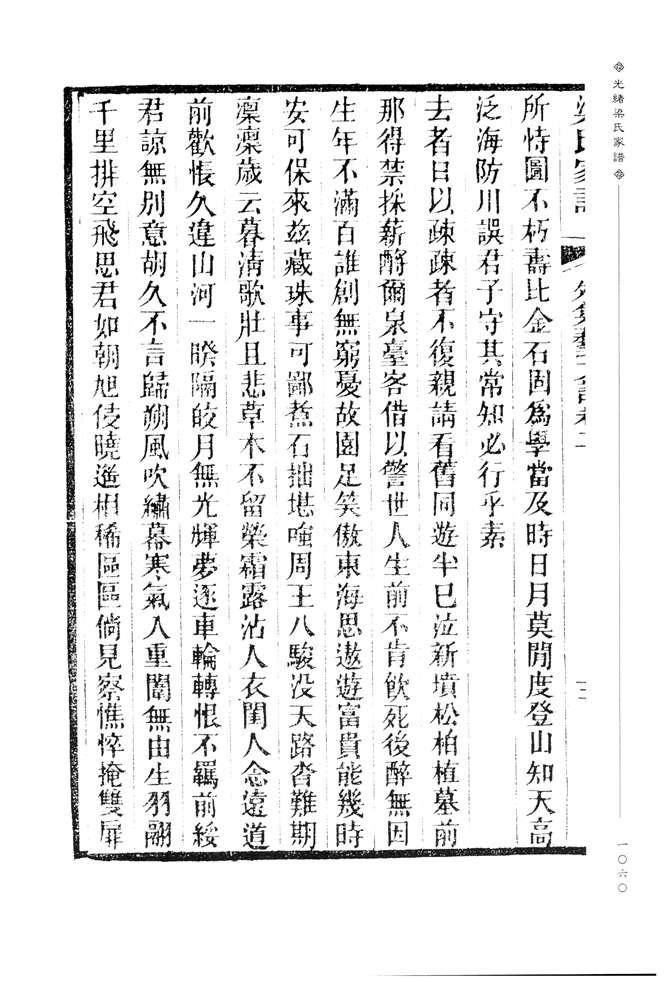 光緒梁氏家譜
一〇六〇
梁氏家譜
所恃圖不朽壽比金石固爲學當及時日月莫閒度登山知天高
泛海防川誤君子守其常知必行乎素
去者日以疎疎者不復親請看舊同遊半已泣新墳松柏植墓前
那得禁採薪酹爾泉臺客借以警世人生前不肯飲死後醉無因
生年不滿百誰創無窮憂故園足笑傲東海思遨遊富貴能幾時
安可保來玆藏珠事可鄙煮石拙堪嗤周王八駿没天路沓難期
凜凜歲云暮淸歌壯且悲草木不留榮霜露沾人衣閨人念遠道
前歡悵久違山河一暌隔皎月無光輝夢逐車輪轉恨不羈前綏
君諒無別意胡久不言歸朔風吹繡幕寒氣人重闈無由生羽翮
千里排空飛思君如朝旭侵曉遙相稀區區倘見察憔悴掩雙扉